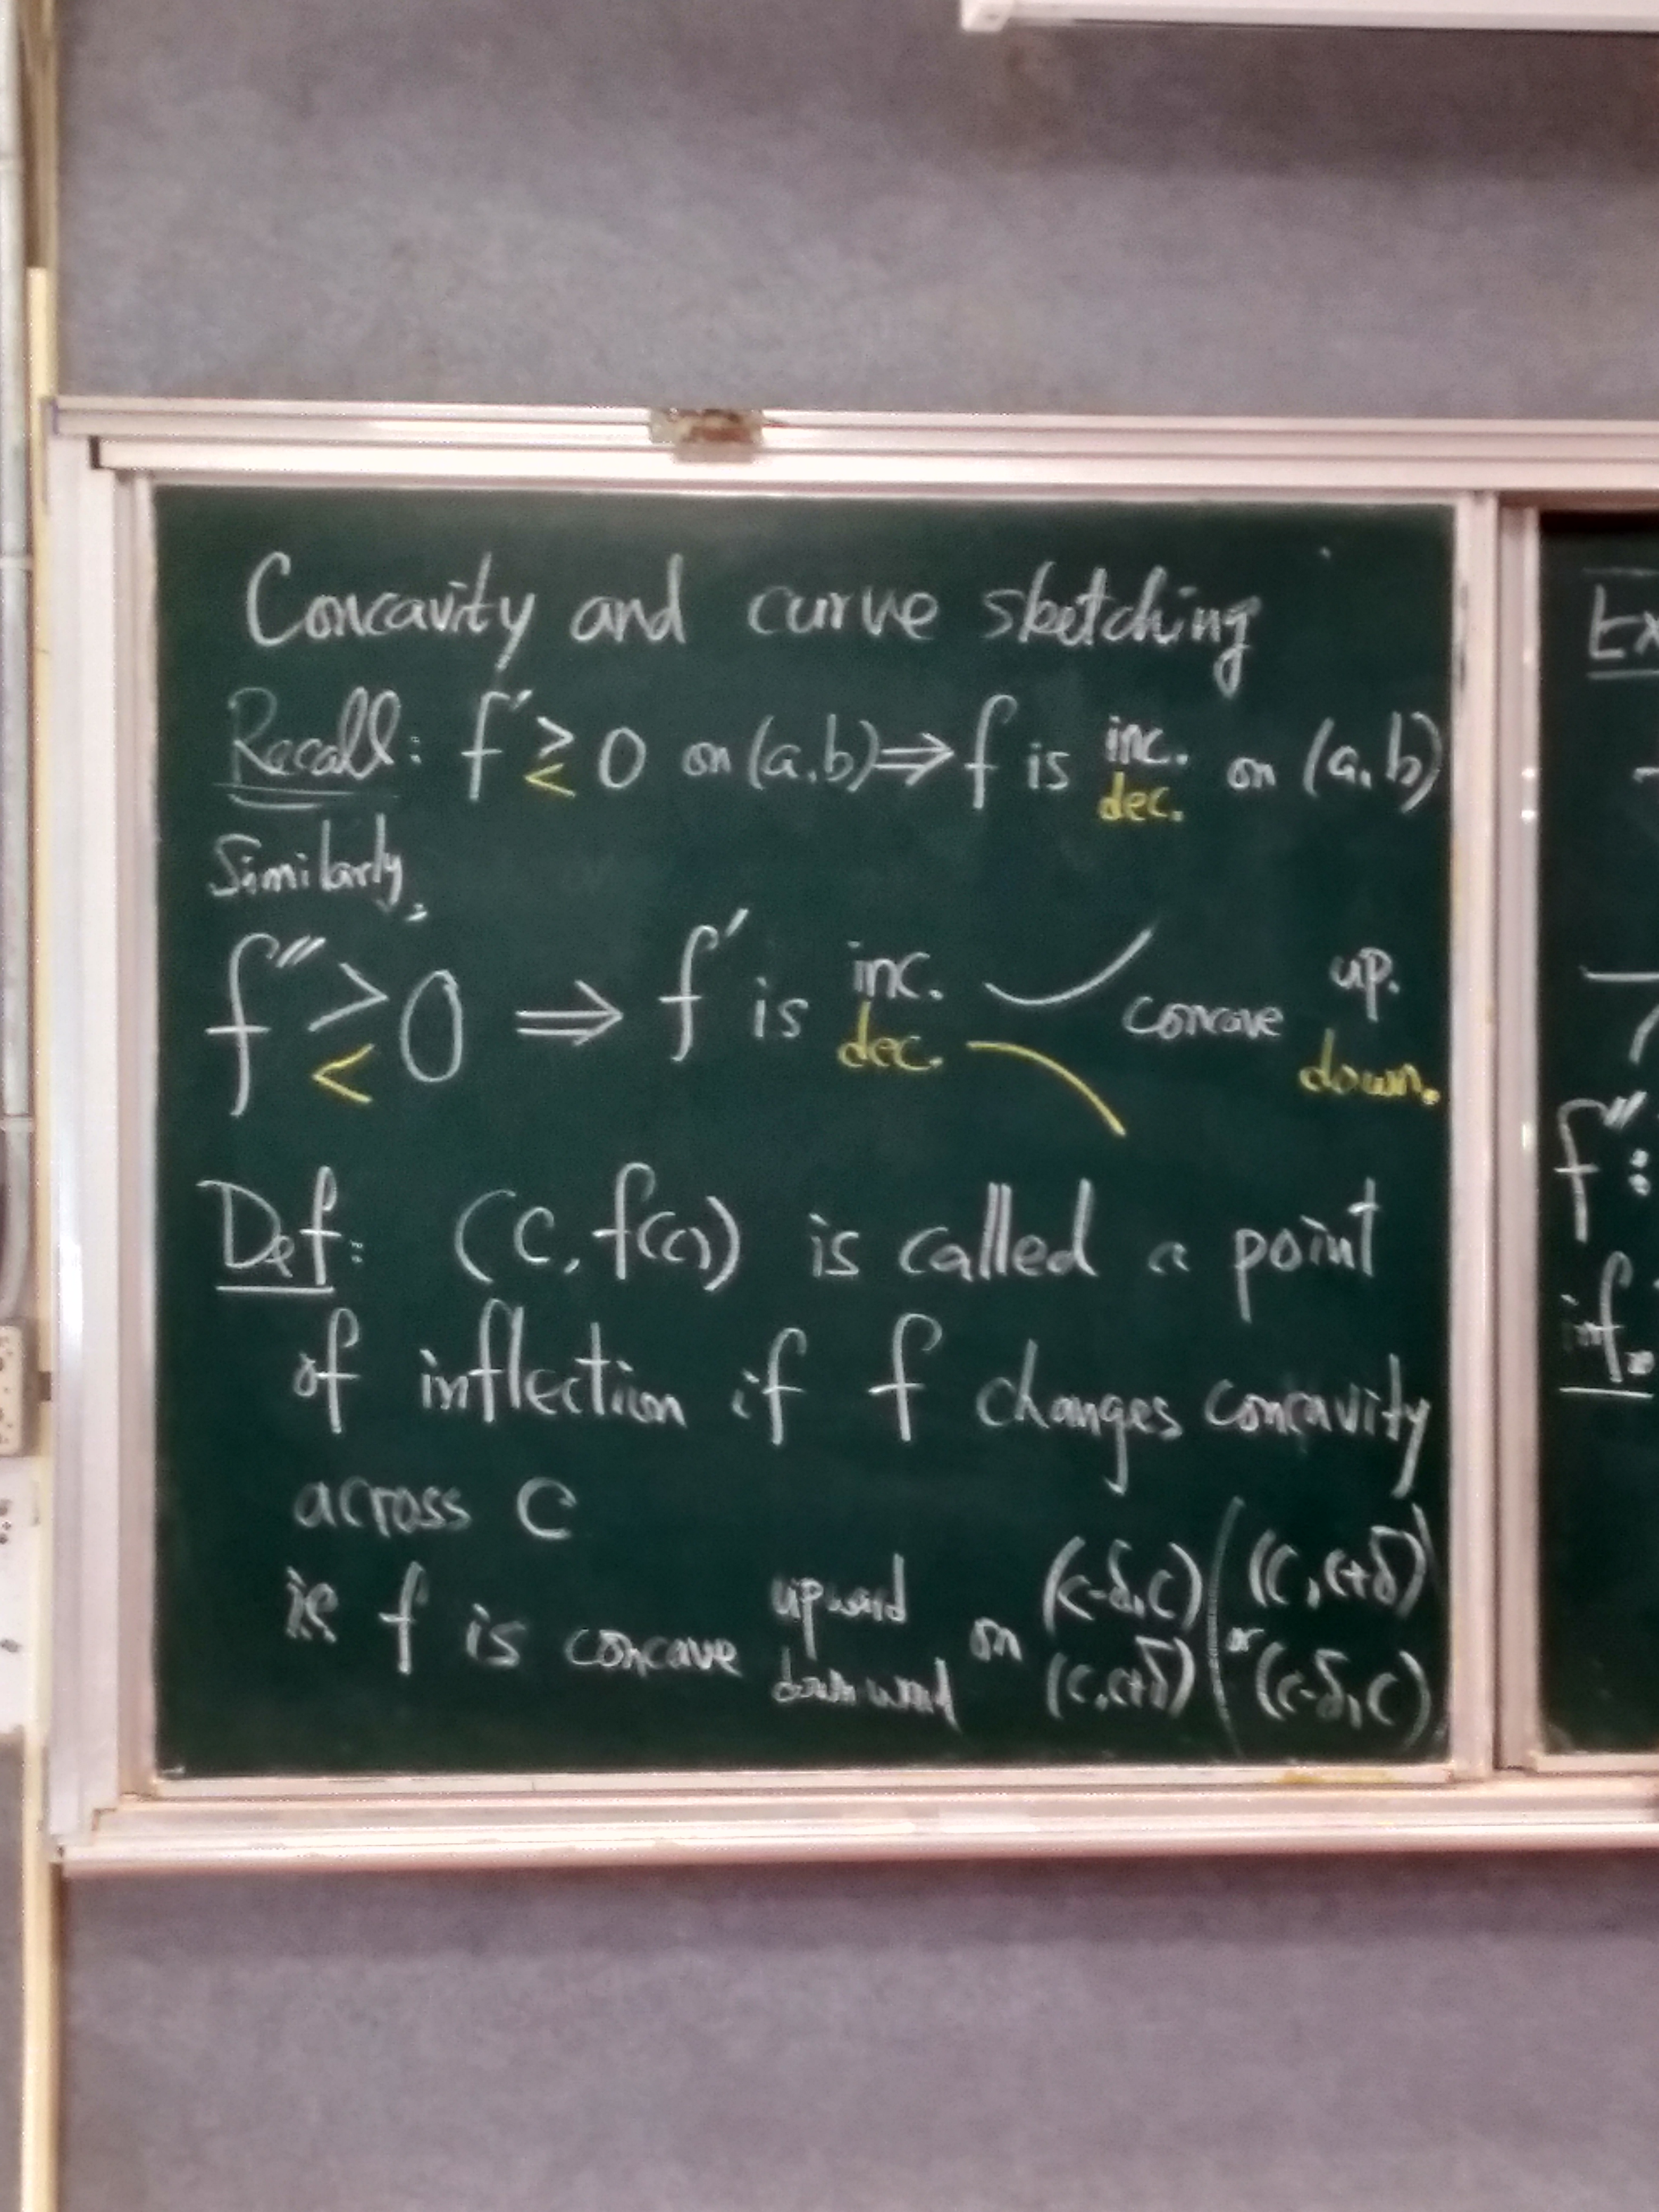 Concavity and curve sketching
Recall: f' > 0 on (a,b) ⇒ f is inc. on (a,b)
< dec.
Similarly,
f'' > 0 ⇒ f' is inc. concave up.
< dec. down.
Def: (c, f(c)) is called a point
of inflection if f changes concavity
across c
ie f is concave upward on (c-δ,c) ( (c,c+δ) )
downward (c,c+δ) or (c-δ,c)
Ex
f'':
inf.